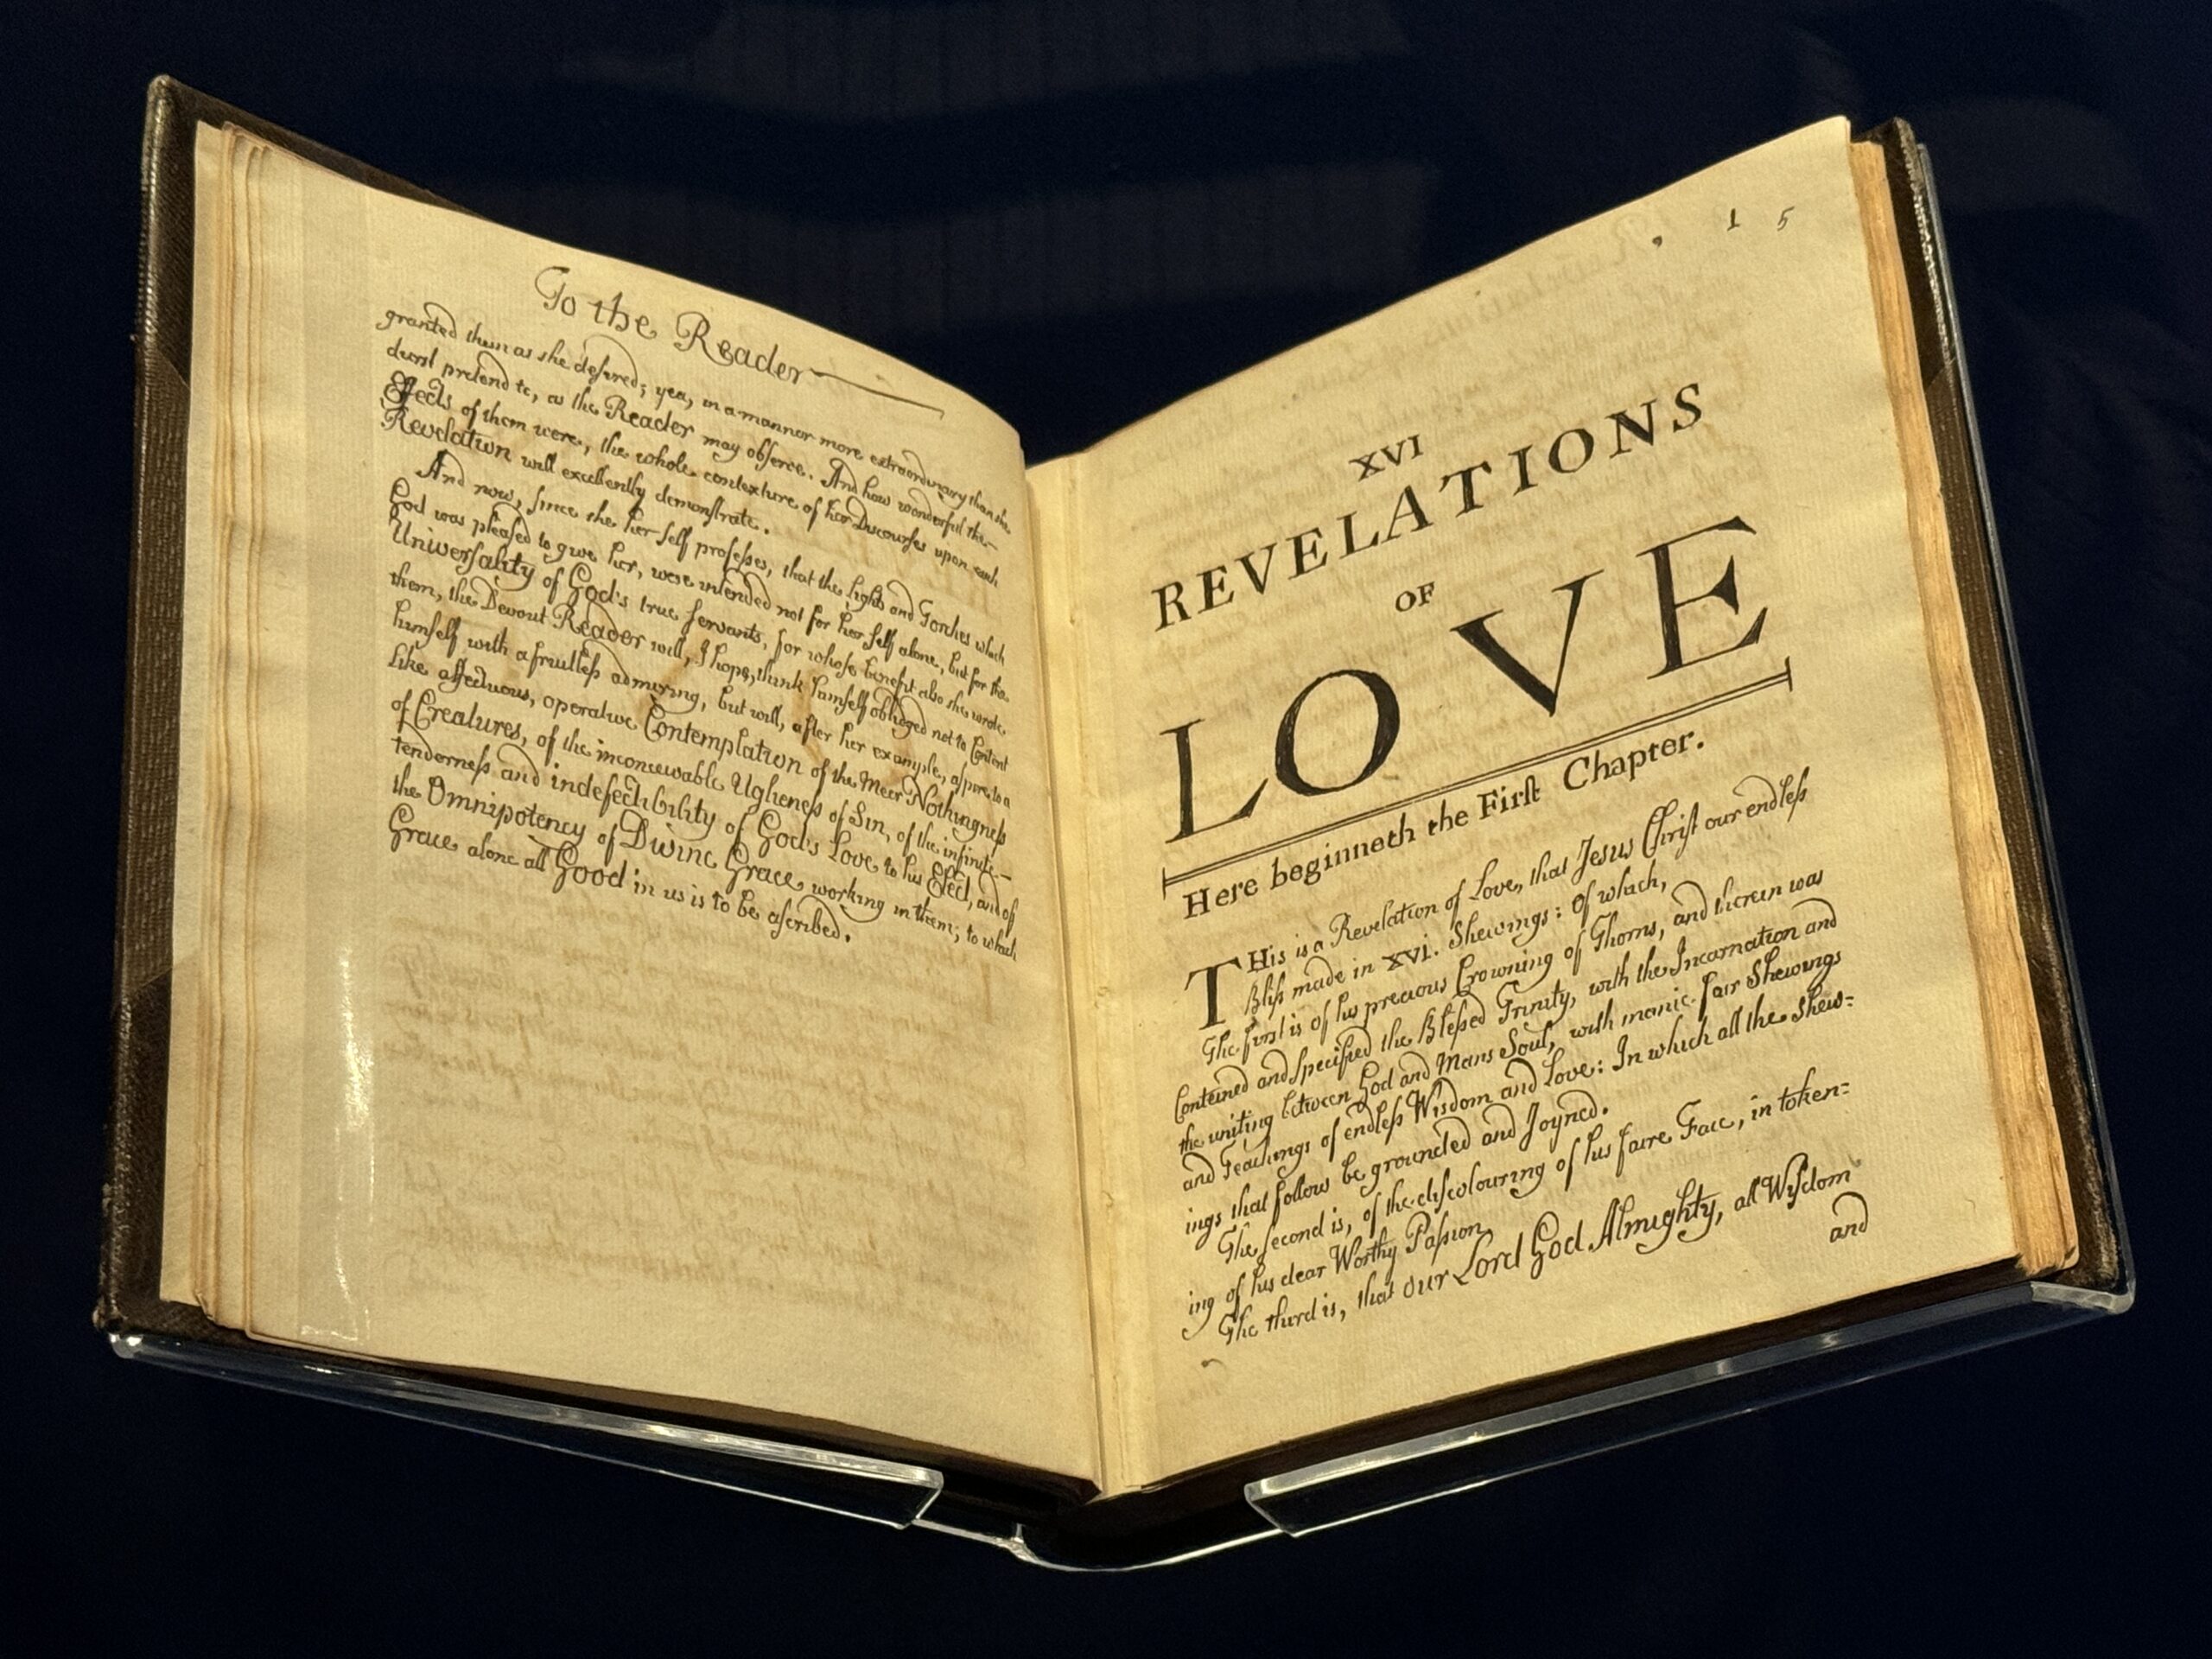 To the Reader
granted them as she desired; yea, in a mannor more extraordinary than she
durst pretend to, as the Reader may observe. And how wonderful the
Effects of them were, the whole contexture of her Discourses upon each
Revelation will excellently demonstrate.
And now, since she her self professes, that the Lights and Torches which
God was pleased to give her, were intended not for her self alone, but for the
Universality of God's true servants, for whose benefit also she wrote
them, the Devout Reader will, I hope, think himself obliged not to Content
himself with a fruitless admiring, but will, after her example, aspire to a
like affectuous, operative Contemplation of the Meer Nothingness
of Creatures, of the inconceivable Ugliness of Sin, of the infinite
tenderness and indefectibility of God's Love to his Elect, and of
the Omnipotency of Divine Grace working in them; to which
Grace alone all Good in us is to be ascribed.
15
XVI
REVELATIONS
OF
LOVE
Here beginneth the First Chapter.
THis is a Revelation of Love, that Jesus Christ our endless
Bliss made in XVI. Shewings: Of which,
The first is of his precious Crowning of Thorns, and therein was
Conteined and specified the Blessed Trinity, with the Incarnation and
the uniting between God and Mans Soul, with manie fair Shewings
and Teachings of endless Wisdom and Love: In which all the Shew=
ings that follow be grounded and Joyned.
The second is, of the discolouring of his faire Face, in token=
ing of his dear Worthy Passion.
The third is, that our Lord God Almighty, all Wisdom
and